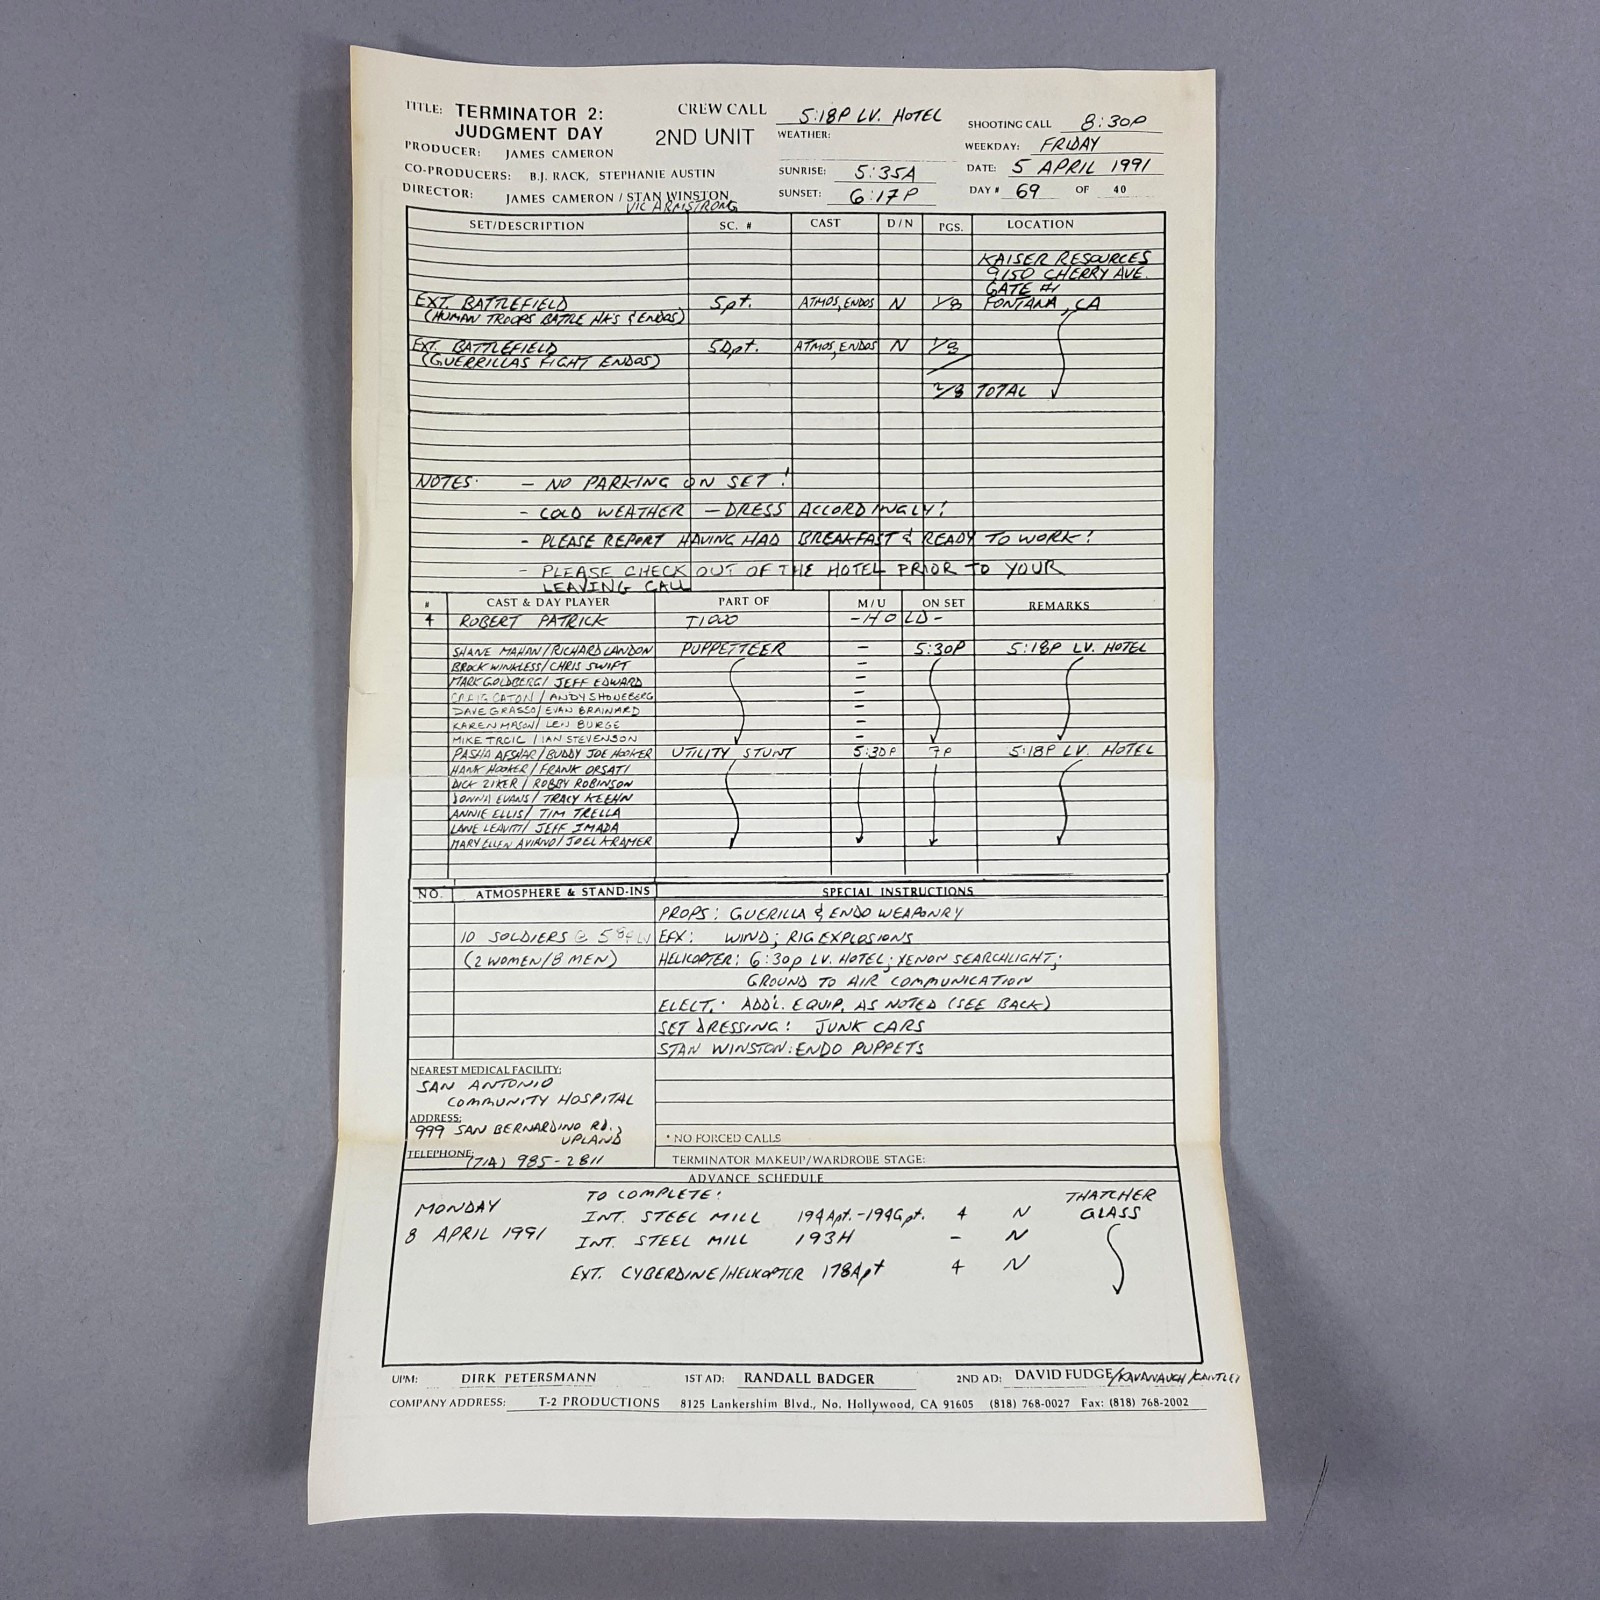 TITLE: TERMINATOR 2: JUDGMENT DAY
PRODUCER: JAMES CAMERON
CO-PRODUCERS: B.J. RACK, STEPHANIE AUSTIN
DIRECTOR: JAMES CAMERON / STAN WINSTON
VIC ARMSTRONG
CREW CALL 5:18P LV. HOTEL
2ND UNIT
WEATHER:
SUNRISE: 5:35A
SUNSET: 6:17P
SHOOTING CALL 8:30P
WEEKDAY: FRIDAY
DATE: 5 APRIL 1991
DAY # 69 OF 40
SET/DESCRIPTION SC. # CAST D/N PGS. LOCATION
KAISER RESOURCES
9150 CHERRY AVE.
GATE #1
EXT. BATTLEFIELD 5pt. ATMOS, ENDOS N 1/8 FONTANA, CA
(HUMAN TROOPS BATTLE HK'S & ENDOS)
EXT. BATTLEFIELD 5Dpt. ATMOS, ENDOS N 1/8
(GUERRILLAS FIGHT ENDOS)
2/8 TOTAL
NOTES: - NO PARKING ON SET!
- COLD WEATHER - DRESS ACCORDINGLY!
- PLEASE REPORT HAVING HAD BREAKFAST & READY TO WORK!
- PLEASE CHECK OUT OF THE HOTEL PRIOR TO YOUR
LEAVING CALL
# CAST & DAY PLAYER PART OF M/U ON SET REMARKS
4 ROBERT PATRICK T1000 -HOLD-
SHANE MAHAN/RICHARD LANDON PUPPETTEER - 5:30P 5:18P LV. HOTEL
BROCK WINKLESS/CHRIS SWIFT -
MARK GOLDBERG/JEFF EDWARD -
CRAIG CATON/ANDY SHONEBERG -
DAVE GRASSO/EVAN BRAINARD -
KAREN MASON/LEN BURGE -
MIKE TRCIC/IAN STEVENSON -
PASHA AFSHAR/BUDDY JOE HOOKER UTILITY STUNT 5:30P 7P 5:18P LV. HOTEL
HANK HOOKER/FRANK ORSATI
DICK ZIKER/ROBBY ROBINSON
DONNA EVANS/TRACY KEEHN
ANNIE ELLIS/TIM TRELLA
LANE LEAVITT/JEFF IMADA
MARY ELLEN AVIANO/JOEL KRAMER
NO. ATMOSPHERE & STAND-INS SPECIAL INSTRUCTIONS
PROPS: GUERILLA & ENDO WEAPONRY
10 SOLDIERS @ EFX: WIND; RIG EXPLOSIONS
(2 WOMEN/8 MEN) HELICOPTER: 6:30p LV. HOTEL; XENON SEARCHLIGHT;
GROUND TO AIR COMMUNICATION
ELECT.: ADD'L. EQUIP. AS NOTED (SEE BACK)
SET DRESSING: JUNK CARS
STAN WINSTON: ENDO PUPPETS
NEAREST MEDICAL FACILITY:
SAN ANTONIO
COMMUNITY HOSPITAL
ADDRESS:
999 SAN BERNARDINO RD.,
UPLAND
TELEPHONE: (714) 985-2811
* NO FORCED CALLS
TERMINATOR MAKEUP/WARDROBE STAGE:
ADVANCE SCHEDULE
MONDAY
8 APRIL 1991
TO COMPLETE:
INT. STEEL MILL 194Apt.-194Gpt. 4 N THATCHER GLASS
INT. STEEL MILL 193H - N
EXT. CYBERDINE/HELICOPTER 178Apt 4 N
UPM: DIRK PETERSMANN 1ST AD: RANDALL BADGER 2ND AD: DAVID FUDGE/KAVANAUGH/
COMPANY ADDRESS: T-2 PRODUCTIONS 8125 Lankershim Blvd., No. Hollywood, CA 91605 (818) 768-0027 Fax: (818) 768-2002